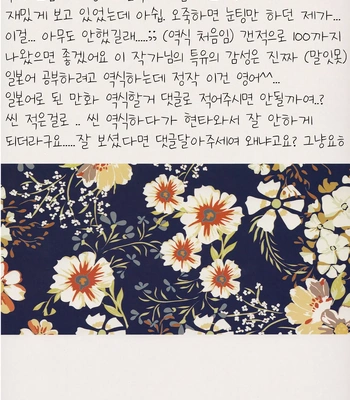 재밌게 보고 있었는데 아쉽. 오죽하면 눈팅만 하던 제가...
이걸... 아무도 안했길래....;; (역식 처음임) 갠적으로 100까지
나왔으면 좋겠어요 이 작가님의 특유의 감성은 진짜 (말잇못)
일본어 공부하려고 역식하는데 정작 이건 영어^^...
일본어로 된 만화 역식할거 댓글로 적어주시면 안될까여..?
씬 적은걸로 .. 씬 역식하다가 현타와서 잘 안하게
되더라구요.....잘 보셨다면 댓글달아주세여 왜냐고요? 그냥요ㅎ